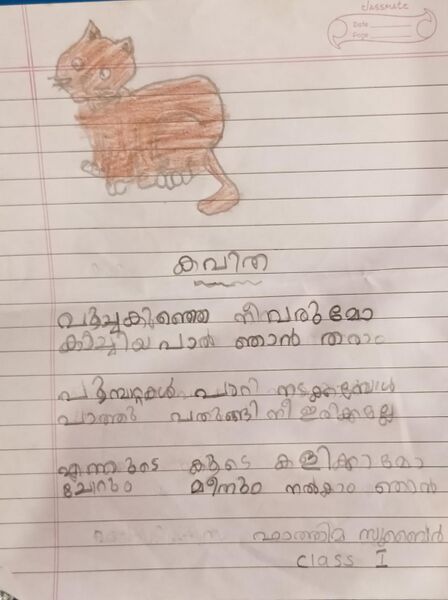 classmate
Date
Page
കവിത
പൂച്ചകുഞ്ഞെ നീ വരുമോ
കാച്ചിയ പാൽ ഞാൻ തരാം
പൂമ്പാറ്റകൾ പാറി നടക്കുമ്പോൾ
പാത്തു പതുങ്ങി നീ ഇരിക്കല്ലേ
എന്നുടെ കൂടെ കളിക്കാമോ
ചോറും മീനും നൽകാം ഞാൻ
ഫാത്തിമ സുബൈർ
class I